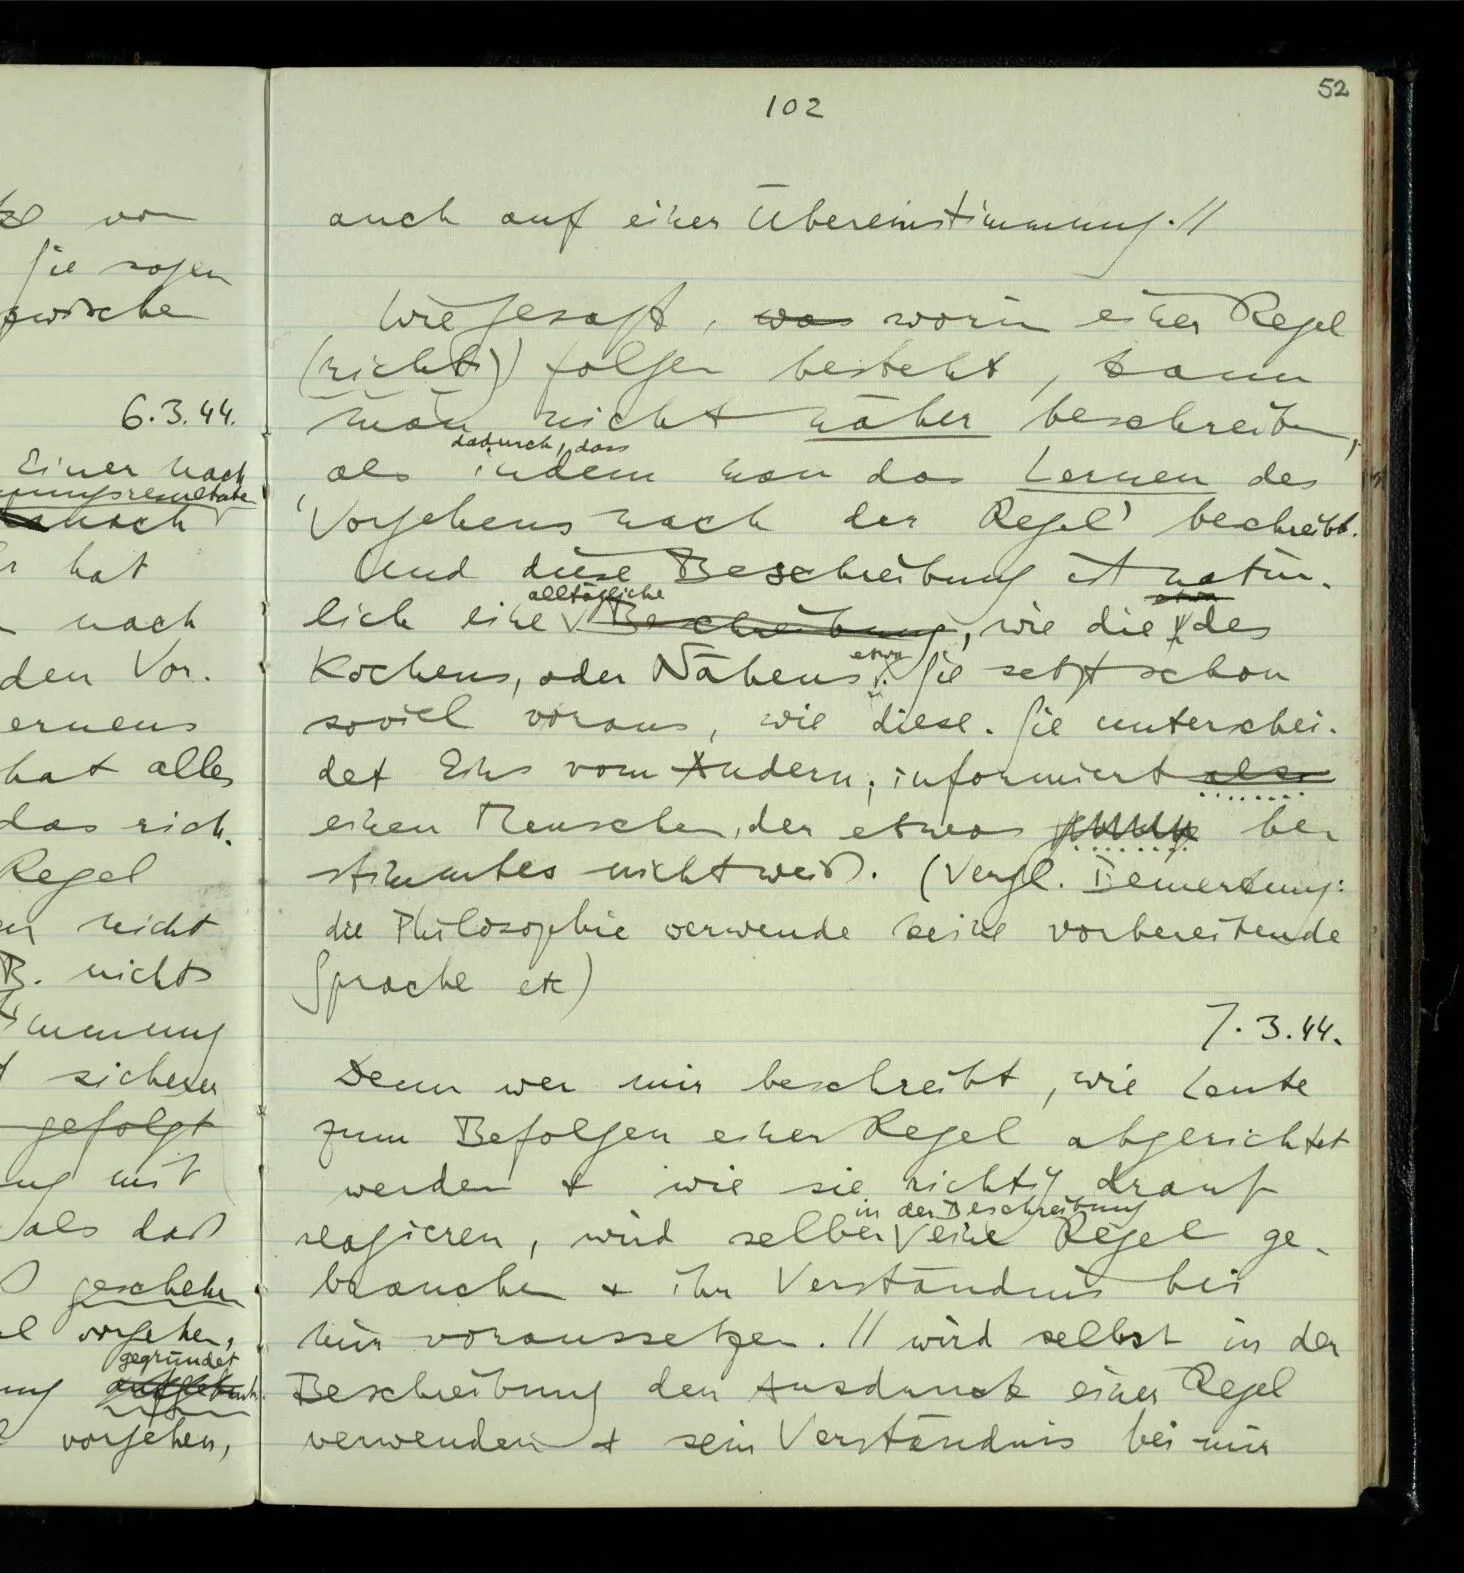 52
102
auch auf einer Übereinstimmung. //
Wie gesagt, was worin einer Regel
(richtig) folgen besteht, kann
man nicht näher beschreiben,
dadurch, dass
als indem man das Lernen des
'Vorgehens nach der Regel' beschreibt.
Und diese Beschreibung ist natür-
alltägliche etwa
lich eine Beschreibung, wie die des
etwa
Kochens, oder Nähens. Sie setzt schon
soviel voraus, wie diese. Sie unterschei-
det Eins vom Andern, informiert also
einen Menschen, der etwas be
stimmtes nicht weiß. (Vergl. Bemerkung:
die Philosophie verwende keine vorbereitende
Sprache etc)
7.3.44.
Denn wer mir beschreibt, wie Leute
zum Befolgen einer Regel abgerichtet
werden & wie sie richtig drauf
in der Beschreibung
reagieren, wird selber eine Regel ge-
brauchen & ihr Verständnis bei
mir voraussetzen. // wird selbst in der
Beschreibung den Ausdruck einer Regel
verwenden & sein Verständnis bei mir
von
Sie sagen
6.3.44.
Einer nach
hat
nach
den Vor-
hat alles
das rich-
Regel
nicht
B. nichts
sicherer
gefolgt
mit
als daß
geschehen
vorgehen,
gegründet
vorgehen,